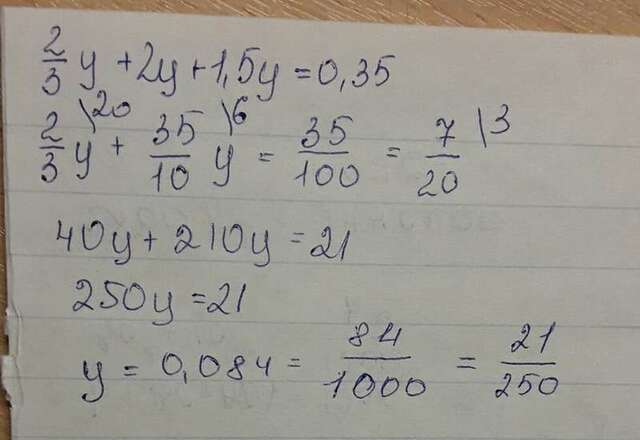 2/3 y + 2y + 1,5y = 0,35
2/3 y \20 + 35/10 y \6 = 35/100 = 7/20 \3
40y + 210y = 21
250y = 21
y = 0,084 = 84/1000 = 21/250